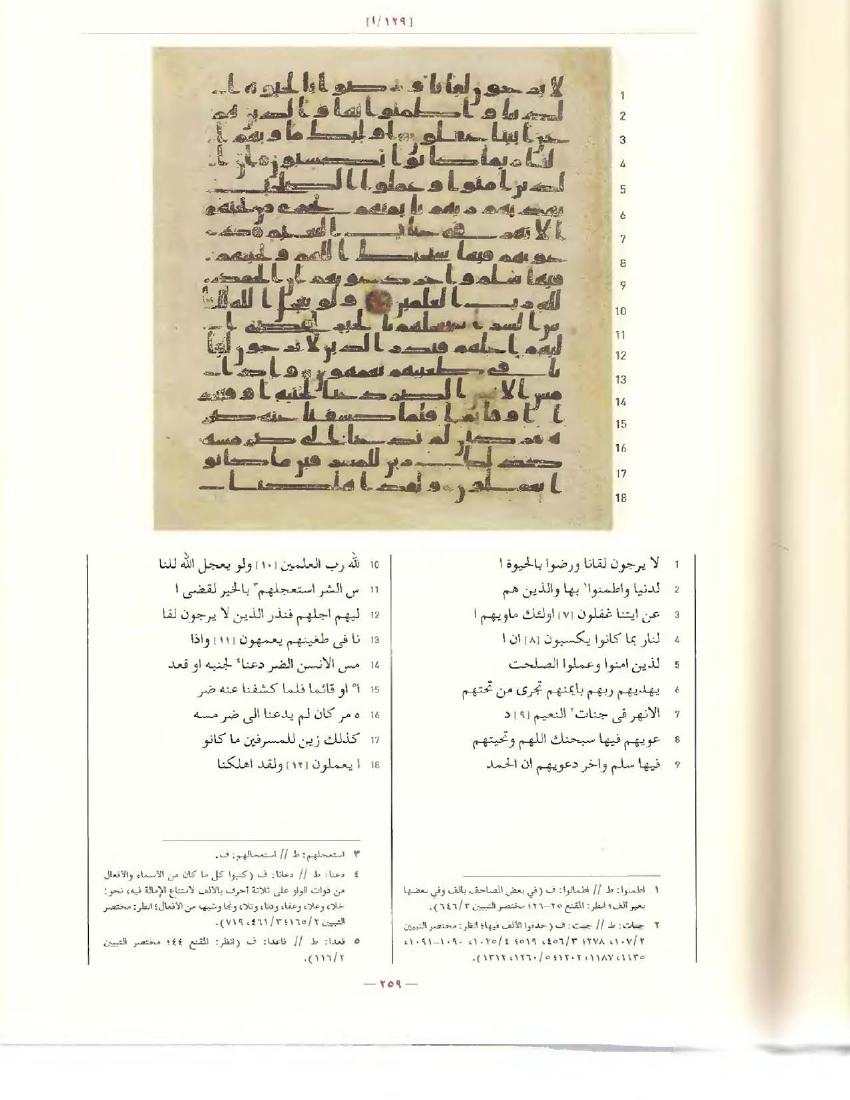 [١/١٢٩]
1
2
3
4
5
6
7
8
9
10
11
12
13
14
15
16
17
18
١ لا يرجون لقانا ورضوا بالحيوة ا
٢ لدنيا واطمنوا١ بها والذين هم
٣ عن ايتنا غفلون [٧] اولئك ماويهم ا
٤ لنار بما كانوا يكسبون [٨] ان ا
٥ لذين امنوا وعملوا الصلحت
٦ يهديهم ربهم بايمنهم تجرى من تحتهم
٧ الانهر فى جنات٢ النعيم [٩] د
٨ عويهم فيها سبحنك اللهم وتحيتهم
٩ فيها سلم واخر دعويهم ان الحمد
١٠ لله رب العلمين [١٠] ولو يعجل الله للنا
١١ س الشر استعجلهم٣ بالخير لقضى ا
١٢ ليهم اجلهم فنذر الذين لا يرجون لقا
١٣ نا فى طغينهم يعمهون [١١] واذا
١٤ مس الانسن الضر دعنا٤ لجنبه او قعد
١٥ ا٥ او قائما فلما كشفنا عنه ضر
١٦ ه مر كان لم يدعنا الى ضر مسه
١٧ كذلك زين للمسرفين ما كانو
١٨ ا يعملون [١٢] ولقد اهلكنا
١ اطمنوا: ط // اطمانوا: ف (في بعض المصاحف بألف وفي بعضها
بغير ألف؛ انظر: المقنع ٢٥-٢٦؛ مختصر التبيين ٦٤٦/٣).
٢ جنات: ط // جنت: ف (حذفوا الألف فيها؛ انظر: مختصر التبيين
٣ استعجلهم: ط // استعجالهم: ف.
٤ دعنا: ط // دعانا: ف (كتبوا كل ما كان من الأسماء والأفعال
من ذوات الواو على ثلاثة أحرف بالألف لامتناع الإمالة فيه، نحو:
خلا، وعلا، وعفا، ودنا، وتلا، ونجا وشبهه من الأفعال؛ انظر: مختصر
التبيين
٥ قعدا: ط // قاعدا: ف (انظر: المقنع ٤٤؛ مختصر التبيين
١١٦/٢).
— ٢٥٩ —